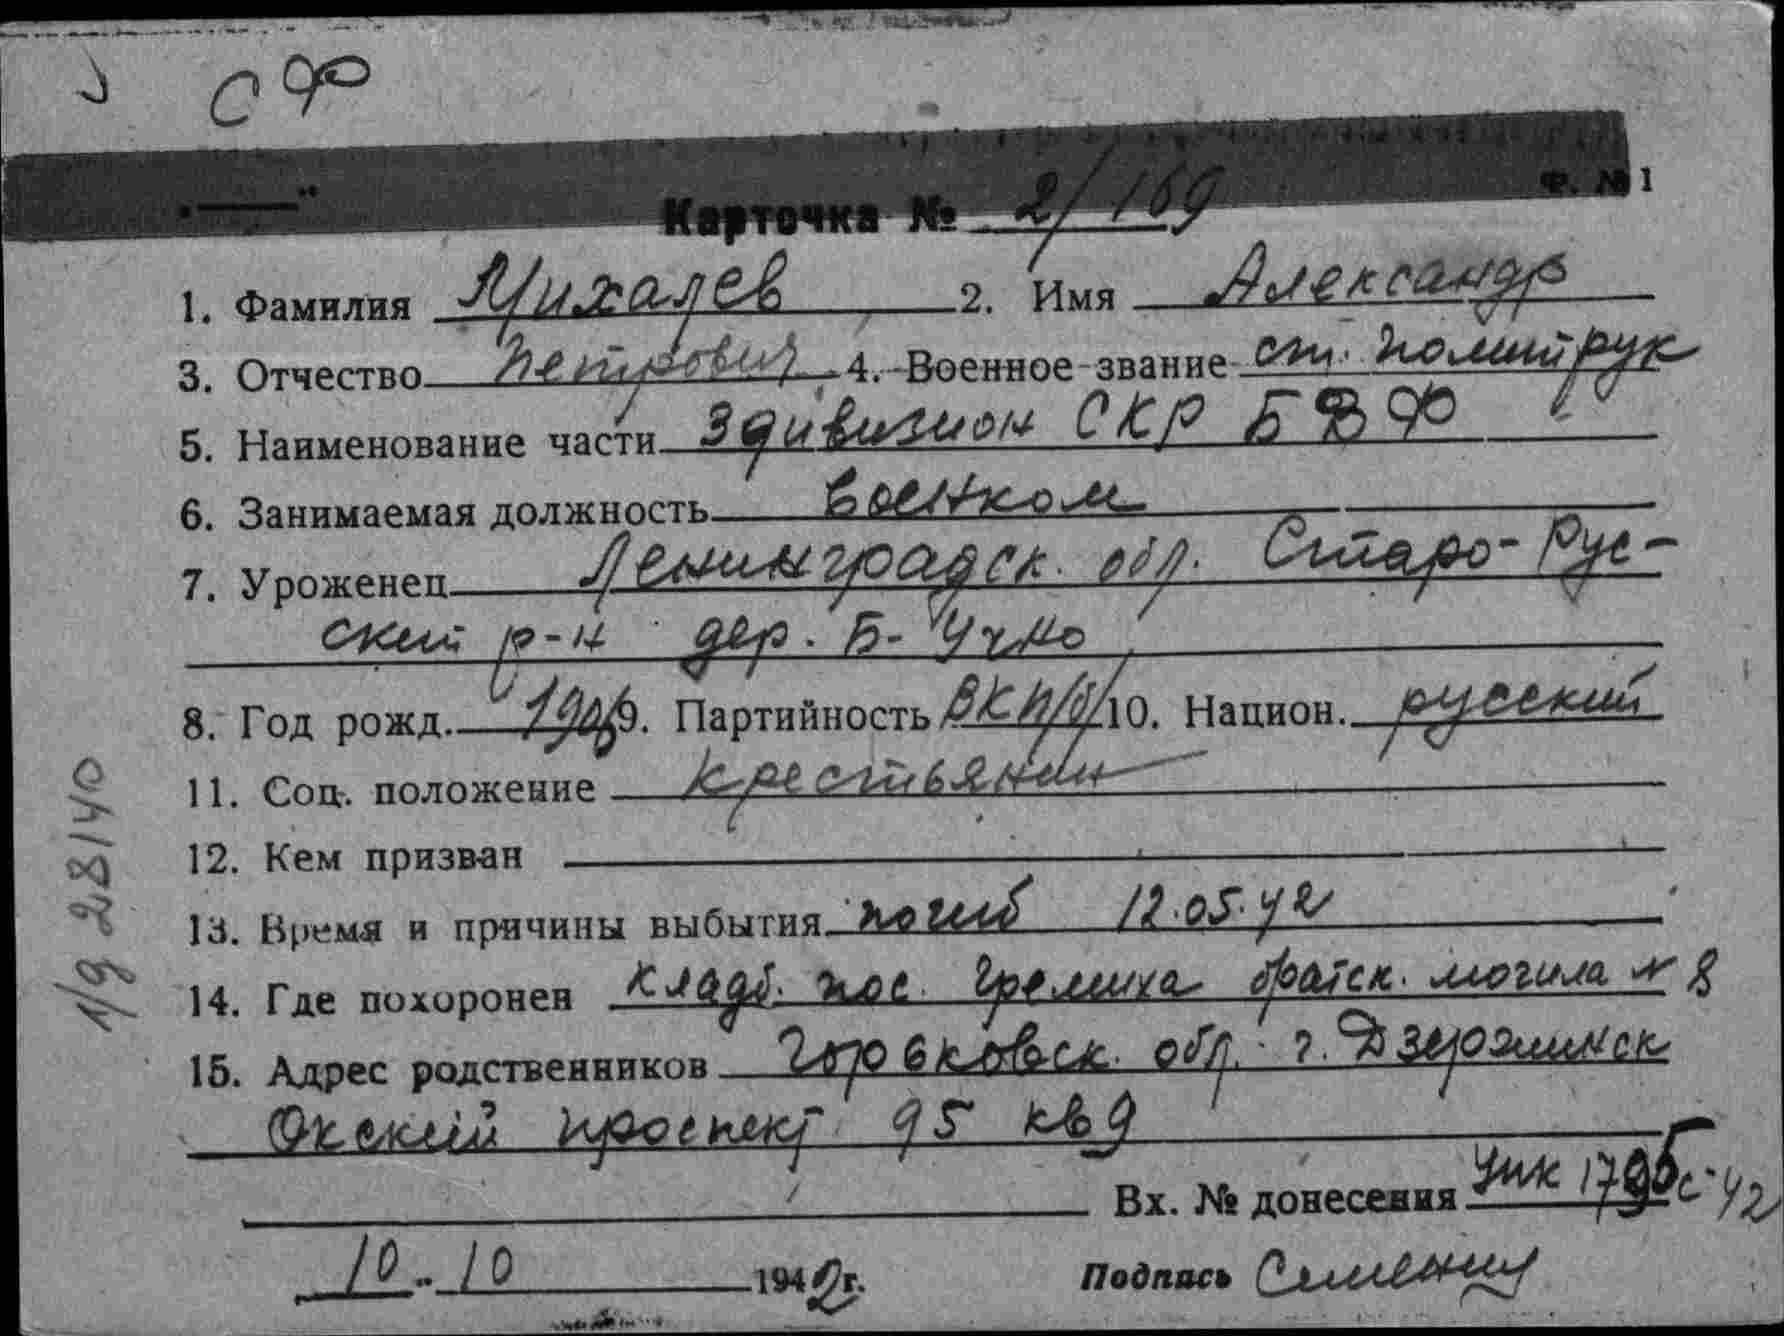 СФ
Ф. № 1
Карточка № 2/169
1. Фамилия Михалев 2. Имя Александр
3. Отчество Петрович 4. Военное звание ст. политрук
5. Наименование части 3 дивизион СКР БВФ
6. Занимаемая должность военком
7. Уроженец Ленинградск. обл. Старо-Рус-
ский р-н дер. Б-Учно
8. Год рожд. 1906 9. Партийность ВКП/б/ 10. Национ. русский
11. Соц. положение крестьянин
12. Кем призван
13. Время и причины выбытия погиб 12.05.42
14. Где похоронен кладб. пос. Гремиха братск. могила № 8
15. Адрес родственников Горьковск. обл. г. Дзержинск
Окский проспект 95 кв 9
Вх. № донесения 1795с-42
10 " 10 1942 г. Подпись
л/д 28140